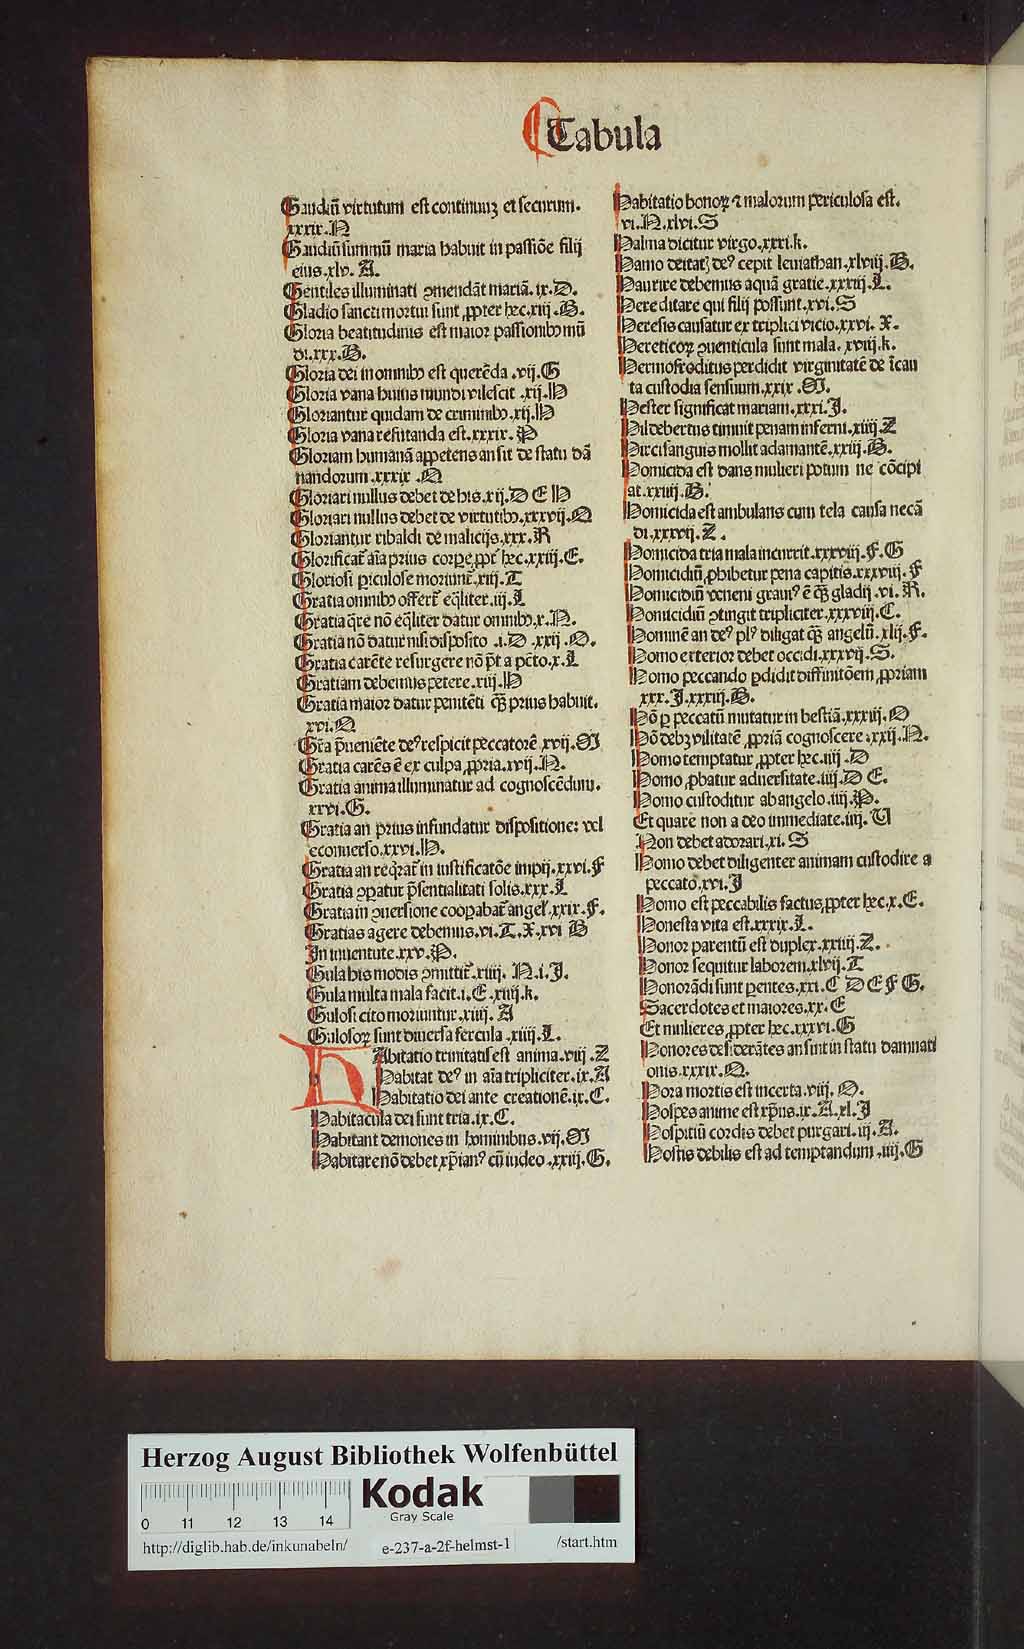 Tabula
Gaudiū virtutum est continuuꝫ et securum.
xxxix.N
Gaudiū summū maria habuit in passiōe filij
eius.xlv. A.
Gentiles illuminati ꝯmendāt mariā.ix.D.
Gladio sancti mortui sunt ꝓpter hec.xiij.B.
Gloria beatitudinis est maior passionibꝰ mū
di.xxx.B.
Gloria dei in omnibꝰ est querēda .vij.G
Gloria vana huius mundi vilescit .xij.H
Gloriantur quidam de criminibꝰ.xij.H
Gloria vana refutanda est.xxxix.P
Gloriam humanā appetens an sit de statu dā
nandorum.xxxix.O
Gloriari nullus debet de his.xij.D E H
Gloriari nullus debet de virtutibꝰ.xxxvij.Q
Gloriantur ribaldi de malicijs.xxx.R
Glorificat᷑ aīa prius corpe,ꝓpt᷑ hec.xxiij.E.
Gloriosi ꝑiculose moriunt᷑.xiij.T
Gratia omnibꝰ offert᷑ eq̄liter.iij.L
Gratia q̄re nō eq̄liter datur omnibꝰ.x.N.
Gratia nō datur nisi disposito .i.D .xxij.O.
Gratia carēte resurgere nō p̄t a pctō.x.L
Gratiam debemus petere.xiij.H
Gratia maior datur penitēti qꝫ̄ prius habuit.
xvi.Q
Gr̄a p̄ueniēte deꝰ respicit peccatorē.xvij.M
Gratia carēs ē ex culpa ꝓpria.xvij.N.
Gratia anima illuminatur ad cognoscēdum.
xxvi.G.
Gratia an prius infundatur dispositione: vel
econuerso.xxvi.H.
Gratia an reqrat᷑ in iustificatōe impij.xxvi.F
Gratia ꝯꝑatur p̄sentialitati solis.xxx.L
Gratia in ꝯuersione cooꝑabat᷑ angel᷑.xxix.F.
Gratias agere debemus.vi.T.X.xvi B
In iuuentute.xxv.P.
Gula his modis ꝯmittit᷑.xiiij. N.i.J.
Gula multa mala facit.i.E.xiiij.k.
Gulosi cito moriuntur.xiiij. A
Gulosoꝝ sunt diuersa fercula .xiiij.L.
HAbitatio trinitatis est anima.viij.Z
Habitat deꝰ in aīa tripliciter.ix.A
Habitatio dei ante creationē.ix.C.
Habitacula dei sunt tria.ix.C.
Habitant demones in hominibus.vij.M
Habitare nō debet xp̄ianꝰ cū iudeo.xxiij.G.
Habitatio bonoꝝ ⁊ malorum periculosa est.
vi.N.xlvi.S
Halma dicitur virgo.xxxi.k.
Hamo deitatꝭ deꝰ cepit leuiathan.xlviij.B.
Haurire debemus aquā gratie.xxxiij.L.
Hereditare qui filij possunt.xvi.S
Heresis causatur ex triplici vicio.xxvi. X.
Hereticoꝝ ꝯuenticula sunt mala. xviij.k.
Hermofroditus perdidit virginitatē de īcau
ta custodia sensuum.xxix .M.
Hester significat mariam.xxxi.J.
Hildebertus timuit penam inferni.xiiij.Z
Hirci sanguis mollit adamantē.xxiij.B.
Homicida est dans mulieri potum ne cōcipi
at.xxiij.B.
Homicida est ambulans cum tela causa necā
di.xxxvij.Z.
Homicida tria mala incurrit.xxxviij.F.G
Homicidiū ꝓhibetur pena capitis.xxxviij.F
Homicidiū veneni grauiꝰ ē qꝫ̄ gladij .vi.R.
Homicidiū ꝯtingit tripliciter.xxxviij.C.
Hominē an deꝰ plꝰ diligat qꝫ̄ angelū.xlij.F.
Homo exterior debet occidi.xxxvij.S.
Homo peccando ꝑdidit diffinitōem ꝓpriam
xxx.J.xxxiij.B.
Hō ꝑ peccatū mutatur in bestiā.xxxiij.O
Hō debꝫ vilitatē ꝓpriā cognoscere.xxij.N.
Homo temptatur ꝓpter hec.iiij.D
Homo ꝓbatur aduersitate.iiij.D E.
Homo custoditur ab angelo.iiij.P.
Et quare non a deo immediate.iiij.U
Non debet adorari.xi.S
Homo debet diligenter animam custodire a
peccato.xvi.J
Homo est peccabilis factus,ꝓpter hec.x.E.
Honesta vita est.xxxix.L.
Honor parentū est duplex.xxiiij.Z.
Honor sequitur laborem.xlvij.T
Honorādi sunt ꝑentes.xxi.C D E F G.
Sacerdotes et maiores.xx.E
Et mulieres,ꝓpter hec.xxxvi.G
Honores desiderātes an sint in statu damnati
onis.xxxix.Q.
Hora mortis est incerta.viij.O.
Hospes anime est xp̄us.ix.A.xl.J
Hospitiū cordis debet purgari.iij.A.
Hostis debilis est ad temptandum.iiij.G
Herzog August Bibliothek Wolfenbüttel
Kodak
Gray Scale
0 11 12 13 14
http://diglib.hab.de/inkunabeln/ e-237-a-2f-helmst-1 /start.htm